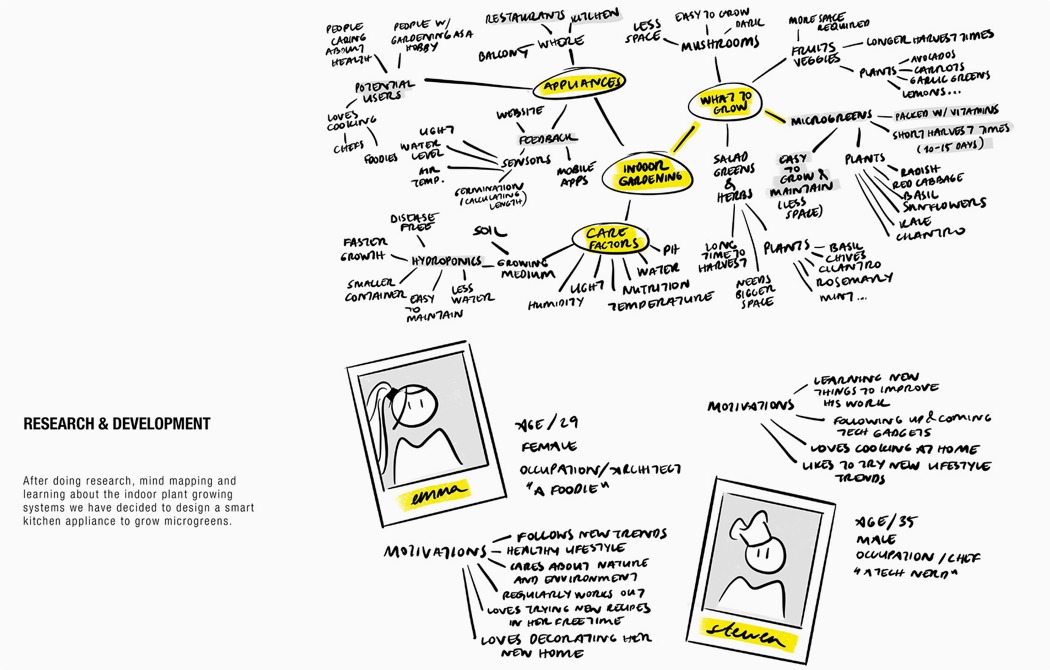 PEOPLE
CARING
ABOUT
HEALTH
PEOPLE W/
GARDENING AS A
HOBBY
POTENTIAL
USERS
LOVES
COOKING
CHEFS
FOODIES
RESTAURANTS
KITCHEN
BALCONY
WHERE
APPLIANCES
WEBSITE
FEEDBACK
MOBILE
APPS
LIGHT
WATER
LEVEL
AIR
TEMP.
SENSORS
GERMINATION
(CALCULATING
LENGTH)
INDOOR
GARDENING
LESS
SPACE
EASY TO GROW
DARK
MUSHROOMS
WHAT TO
GROW
MORE SPACE
REQUIRED
FRUITS
VEGGIES
LONGER HARVEST TIMES
PLANTS
AVOCADOS
CARROTS
GARLIC GREENS
LEMONS...
MICROGREENS
PACKED W/ VITAMINS
SHORT HARVEST TIMES
(10-15 DAYS)
EASY
TO
GROW &
MAINTAIN
(LESS
SPACE)
PLANTS
RADISH
RED CABBAGE
BASIL
SUNFLOWERS
KALE
CILANTRO
SALAD
GREENS
&
HERBS
LONG
TIME TO
HARVEST
NEEDS
BIGGER
SPACE
PLANTS
BASIL
CHIVES
CILANTRO
ROSEMARY
MINT...
CARE
FACTORS
PH
WATER
NUTRITION
TEMPERATURE
LIGHT
HUMIDITY
GROWING
MEDIUM
SOIL
HYDROPONICS
DISEASE
FREE
FASTER
GROWTH
SMALLER
CONTAINER
EASY
TO
MAINTAIN
LESS
WATER
RESEARCH & DEVELOPMENT
After doing research, mind mapping and
learning about the indoor plant growing
systems we have decided to design a smart
kitchen appliance to grow microgreens.
emma
AGE/29
FEMALE
OCCUPATION/ARCHITECT
"A FOODIE"
MOTIVATIONS
FOLLOWS NEW TRENDS
HEALTHY LIFESTYLE
CARES ABOUT NATURE
AND ENVIRONMENT
REGULARLY WORKS OUT
LOVES TRYING NEW RECIPES
IN HER FREE TIME
LOVES DECORATING HER
NEW HOME
MOTIVATIONS
LEARNING NEW
THINGS TO IMPROVE
HIS WORK
FOLLOWING UP & COMING
TECH GADGETS
LOVES COOKING AT HOME
LIKES TO TRY NEW LIFESTYLE
TRENDS
steven
AGE/35
MALE
OCCUPATION/CHEF
"A TECH NERD"